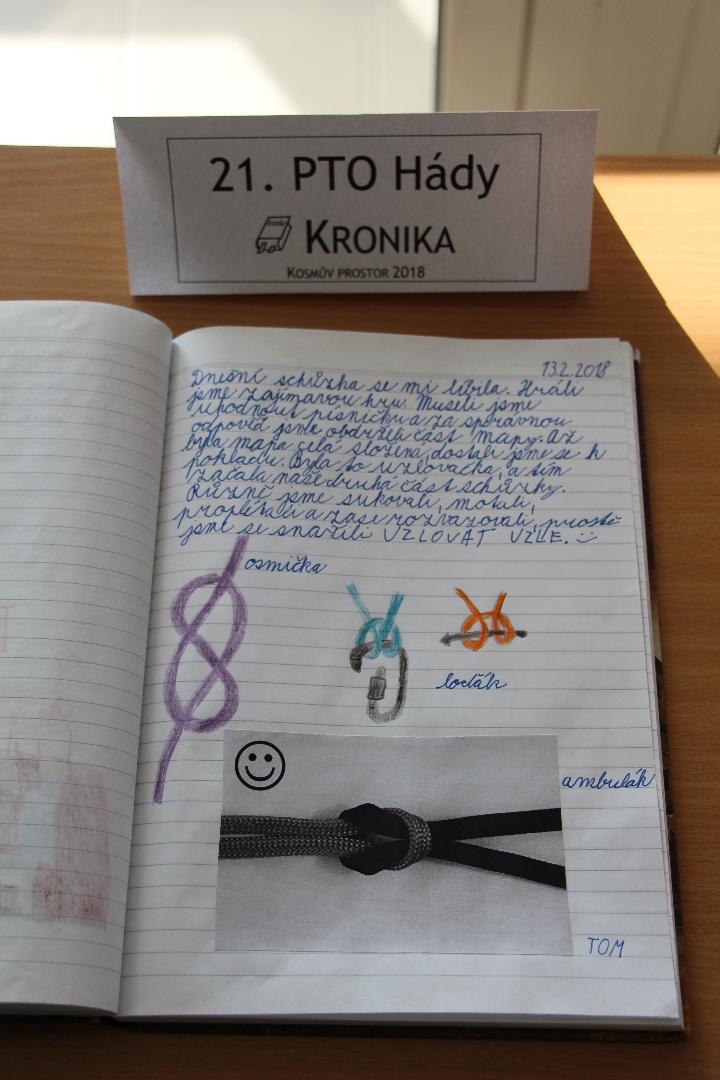 21. PTO Hády
KRONIKA
KOSMŮV PROSTOR 2018
13.2.2018
Dnešní schůzka se mi líbila. Hráli
jsme zajímavou hru. Museli jsme
uhodnout písničku a za správnou
odpověď jsme obdrželi část mapy. Až
byla mapa celá složena, dostali jsme se k
pokladu. Byla to uzlovačka, a tím
začala naše druhá část schůzky.
Různě jsme sukovali, motali,
proplétali a zase rozvazovali, prostě
jsme se snažili UZLOVAT UZLE. :-)
osmička
loďák
ambulák
TOM